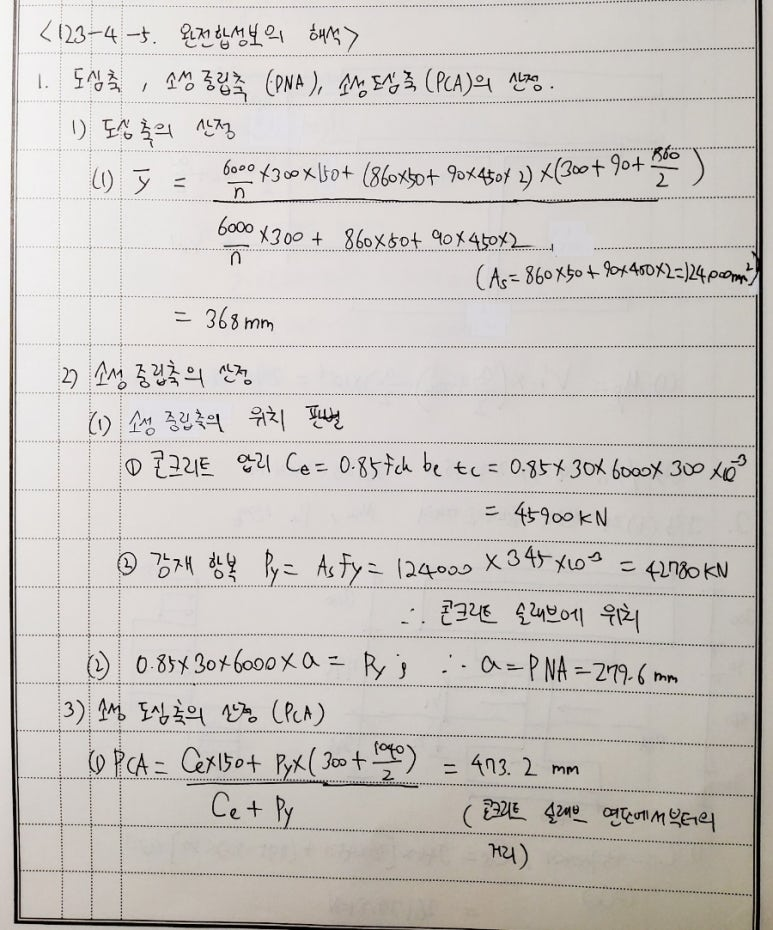 <123-4-5. 완전합성보의 해석>
1. 도심축, 소성중립축 (PNA), 소성도심축 (PCA)의 산정.
1) 도심축의 산정
(1) ȳ = (6000/n × 300 × 150 + (860×50 + 90×450×2) × (300 + 90 + 860/2)) / (6000/n × 300 + 860×50 + 90×450×2)
(As = 860×50 + 90×450×2 = 124000mm²)
= 368mm
2) 소성중립축의 산정
(1) 소성중립축의 위치 판별
① 콘크리트 압괴 Cc = 0.85fck be tc = 0.85×30×6000×300×10⁻³
= 45900KN
② 강재 항복 Py = AsFy = 124000 × 345 × 10⁻³ = 42780KN
∴ 콘크리트 슬래브에 위치
(2) 0.85×30×6000×a = Py ; ∴ a = PNA = 279.6 mm
3) 소성 도심축의 산정 (PCA)
(1) PCA = (Cc×150 + Py×(300 + 1040/2)) / (Cc + Py) = 473.2 mm
(콘크리트 슬래브 연단에서부터의
거리)